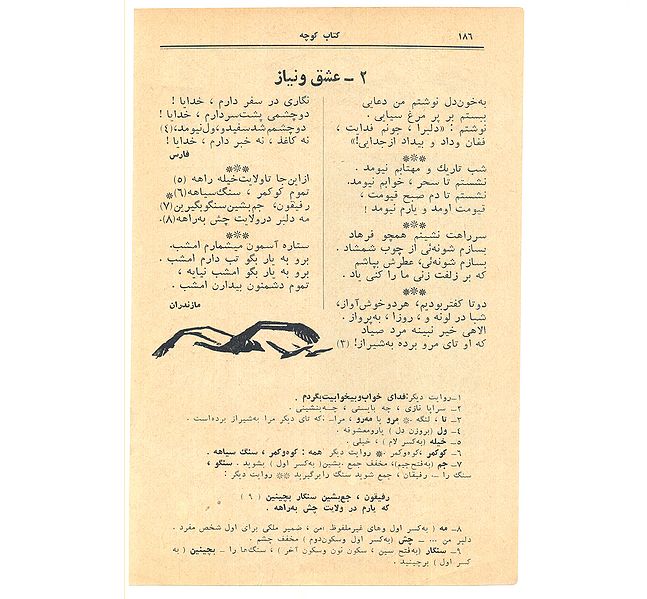 ۱۸۶
کتاب کوچه
۲ ـ عشق و نیاز
به‌خون‌دل نوشتم من دعایی
ببستم بر پر مرغ سیایی .
نوشتم : «دلبرا ، جونم فدایت ،
فغان وداد و بیداد ازجدایی!»
***
شب تاریك و مهتابم نیومد .
نشستم تا سحر ، خوابم نیومد.
نشستم تا دم صبح قیومت ،
قیومت اومد و یارم نیومد !
***
سرراهت نشینم همچو فرهاد
بسازم شونه‌ئی از چوب شمشاد .
بسازم شونه‌ئی، عطرش بپاشم
که بر زلفت زنی ما را کنی یاد .
***
دوتا کفتربودیم، هردوخوش‌آواز،
شبا در لونه و ، روزا ، به‌پرواز .
الاهی خیر نبینه مرد صیاد
که او تای مرو برده به‌شیراز! (۳)
نگاری در سفر دارم ، خدایا !
دوچشمی پشت‌سردارم ، خدایا !
دوچشمم‌شدسفیدو،ول‌نیومد،(۴)
نه کاغذ ، نه خبر دارم ، خدایا !
فارس
***
ازاین‌جا تاولایت‌خیله راهه (۵)
تموم کوکمر ، سنگ‌سیاهه(۶)*
رفیقون، جم‌بشین‌سنگوبگیرین(۷)
مه دلبر درولایت چش به‌راهه(۸).
***
ستاره آسمون میشمارم امشب.
برو به یار بگو تب دارم امشب .
برو به یار بگو امشب نیایه ،
تموم دشمنون بیدارن امشب .
مازندران
۱ــ روایت دیگر: فدای خواب‌وبیخوابیت‌بگردم .
۲ــ سراپا نازی ، چه بایستی ، چــه‌بنشینی .
۳ــ تا ، لنگه . * مرو یا مه‌رو ، مرا ــ که تای دیگر مرا به‌شیراز برده‌است .
۴ــ ول (بروزن دل ) یارومعشوقه .
۵ــ خیله (به‌کسر لام ) ، خیلی .
۶ــ کوکمر ،کوه‌وکمر . * روایت دیگر همه : کوه‌وکمر ، سنگ سیاهه .
۷ــ جم (به‌فتح‌جیم)، مخفف جمع .بشین(به‌کسر اول ) بشوید . سنگو ،
سنگ را ــ رفیقان ، جمع شوید سنگ رابرگیرید ** روایت دیگر :
رفیقون ، جم‌بشین سنگار بچینین ( ۹ )
که یارم در ولایت چش به‌راهه .
۸ــ مه ( به‌کسر اول وهای غیرملفوظ )من ، ضمیر ملکی برای اول شخص مفرد .
دلبر من ... ــ چش (به‌کسر اول وسکون‌دوم ) مخفف چشم .
۹ــ سنگار (به‌فتح سین ، سکون نون وسکون آخر ) ، سنگ‌ها را ــ بچینین ( به
کسر اول ) برچینید .